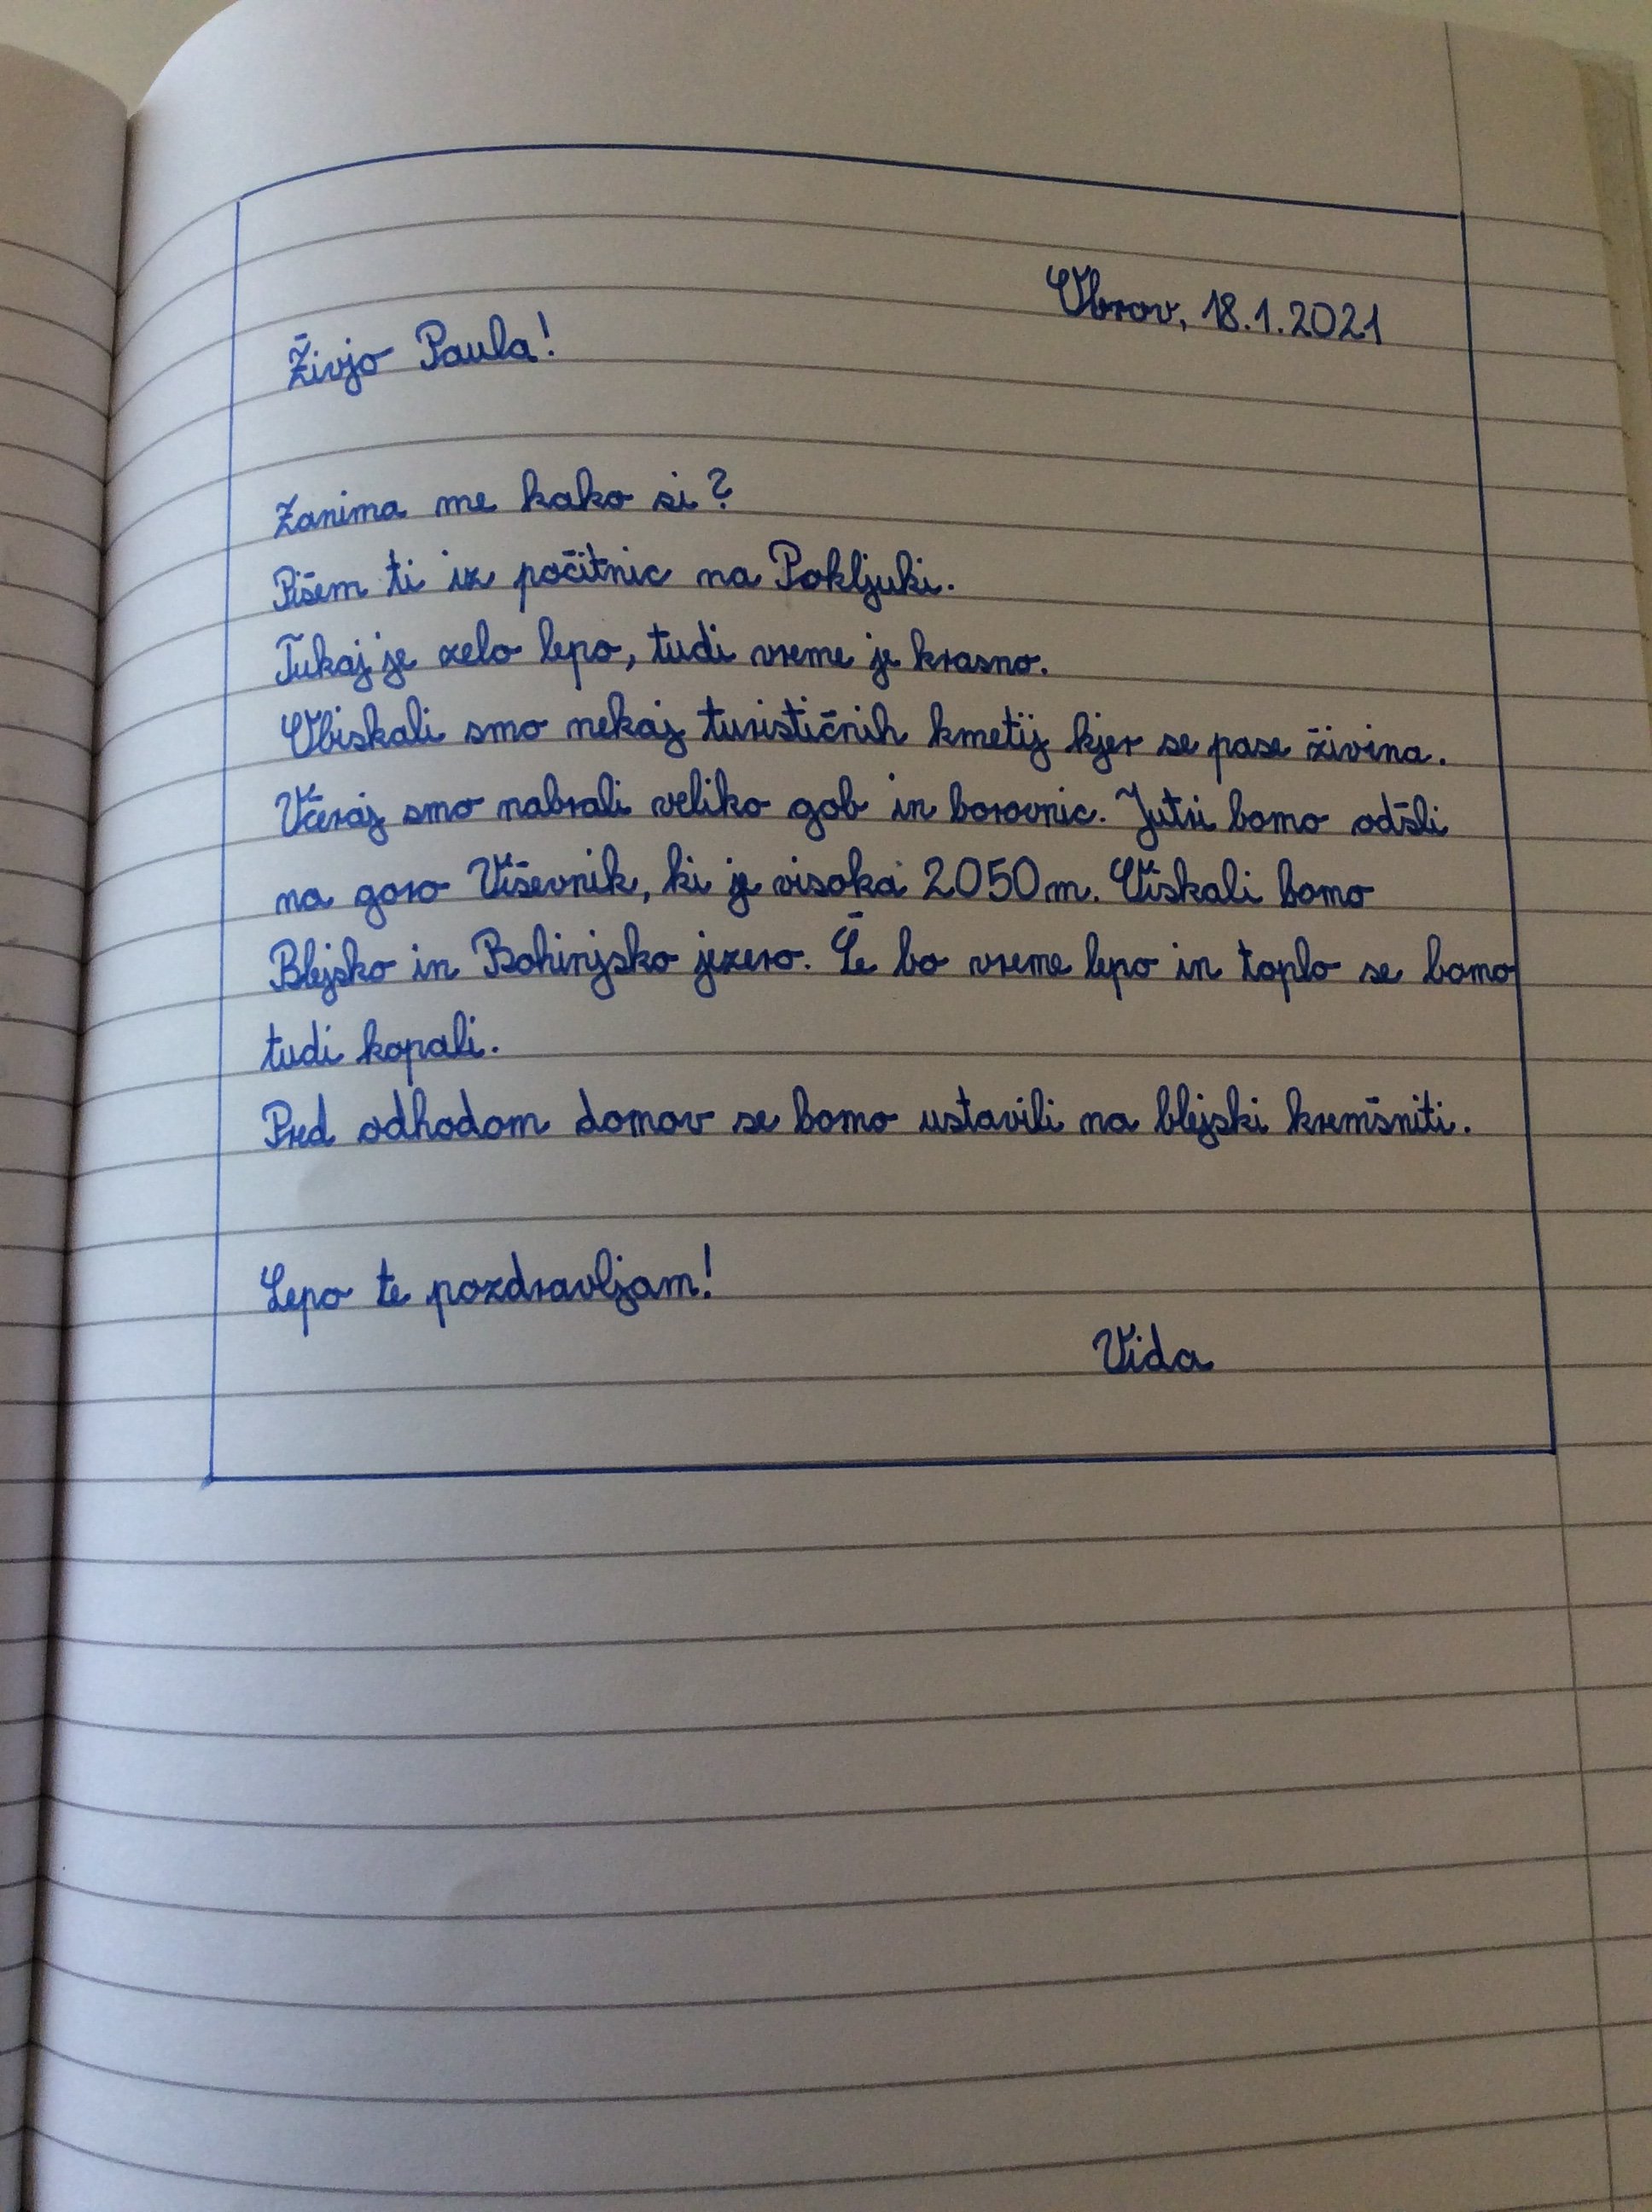 Obrov, 18.1.2021
Živjo Paula!
Zanima me kako si?
Pišem ti iz počitnic na Pokljuki.
Tukaj je zelo lepo, tudi vreme je krasno.
Obiskali smo nekaj turističnih kmetij kjer se pase živina.
Včeraj smo nabrali veliko gob in borovnic. Jutri bomo odšli
na goro Viševnik, ki je visoka 2050m. bomo
Blejsko in Bohinjsko jezero. Če bo vreme lepo in toplo se bomo
tudi kopali.
Pred odhodom domov se bomo ustavili na blejski kremšniti.
Lepo te pozdravljam!
Vida